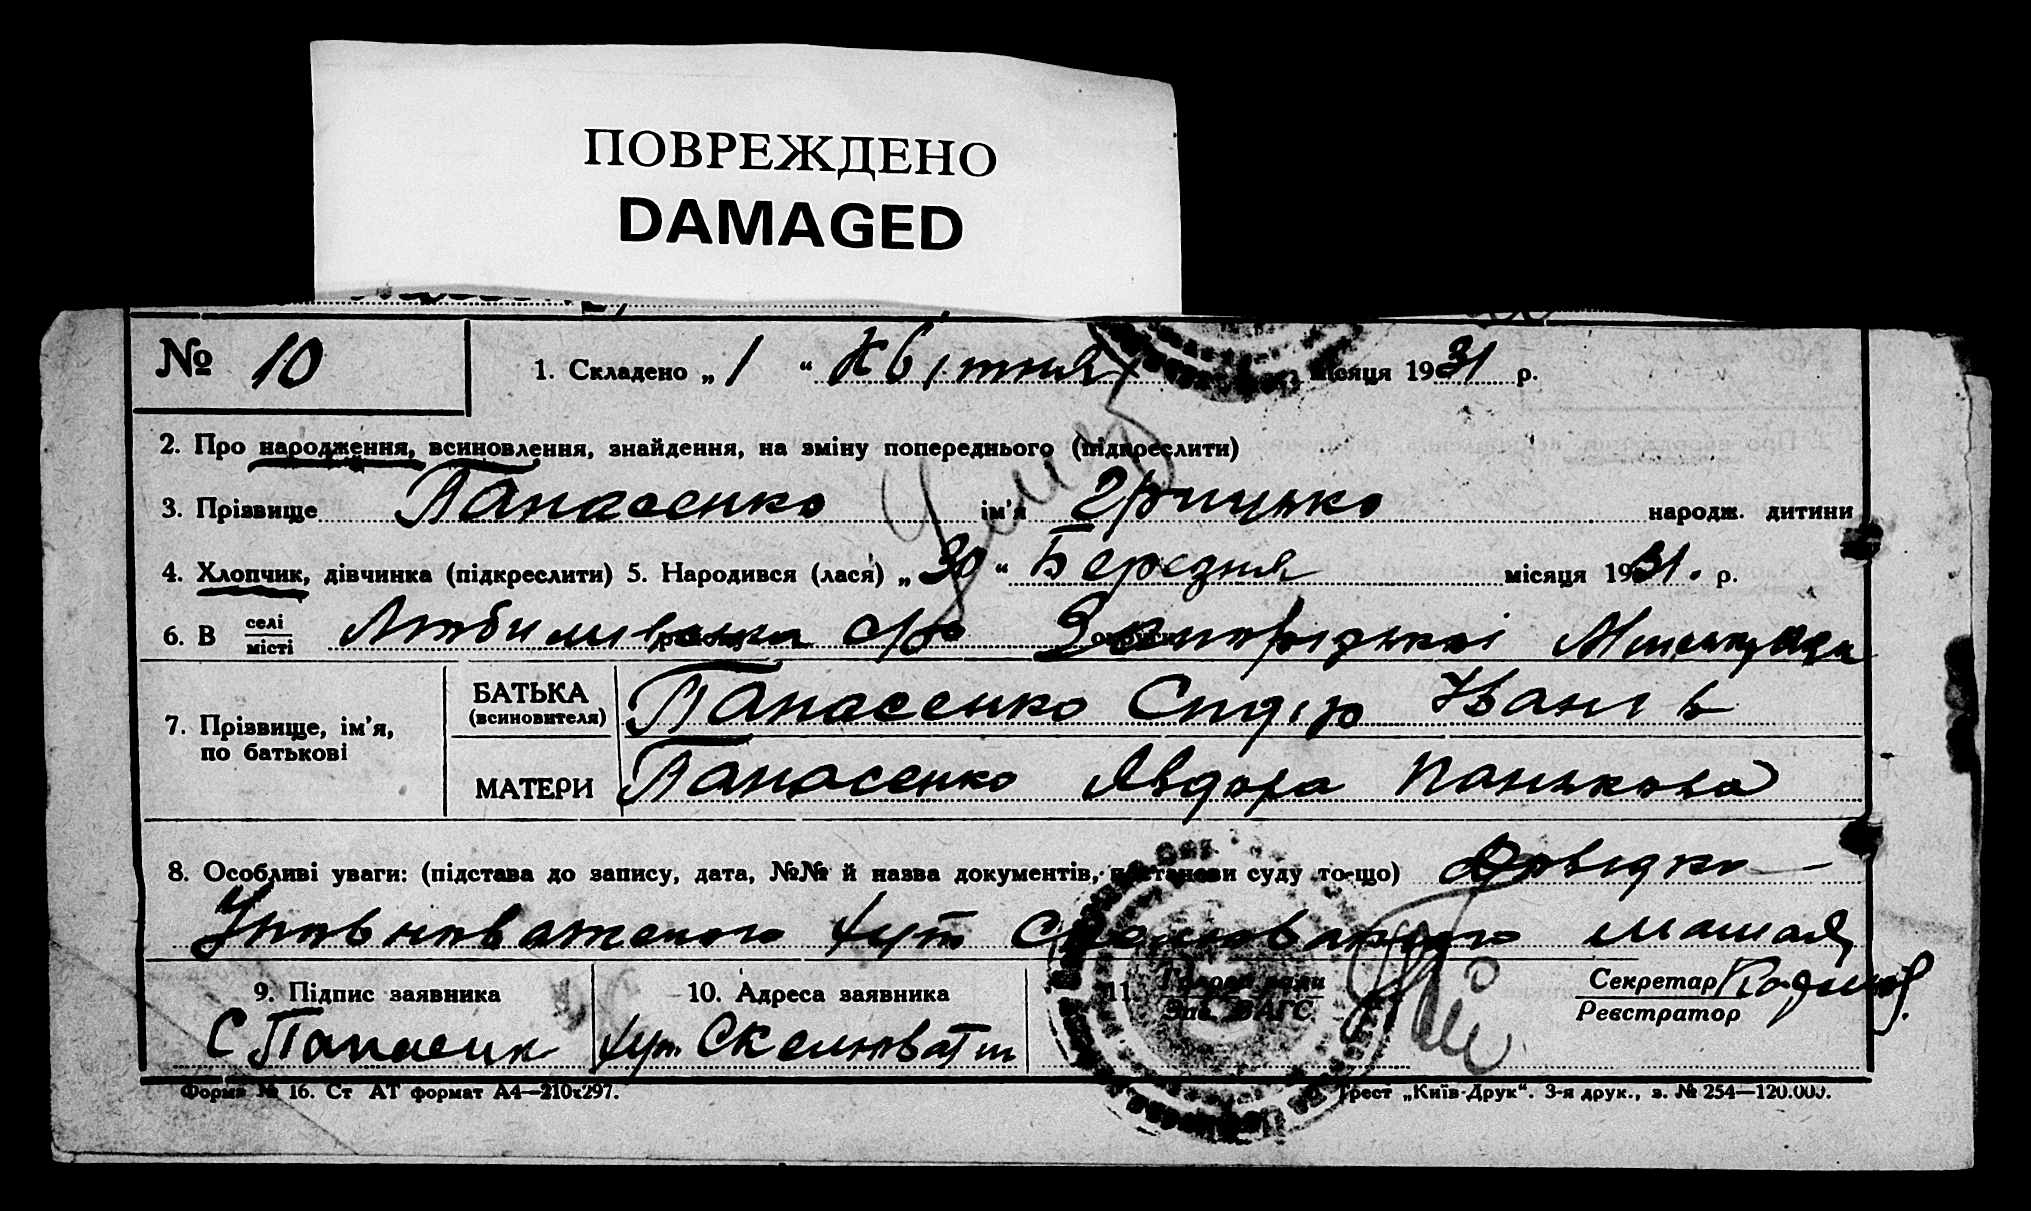 ПОВРЕЖДЕНО
DAMAGED
№ 10
1. Складено „ 1 “ Квітня місяця 1931 р.
2. Про народження, всиновлення, знайдення, на зміну попереднього (підкреслити)
3. Прізвище Панасенко ім'я Грицько народж. дитини
4. Хлопчик, дівчинка (підкреслити) 5. Народився (лася) „ 30 “ Березня місяця 1931. р.
6. В селі місті Любимівка
7. Прізвище, ім'я, по батькові
БАТЬКА (всиновителя) Панасенко Сидір Іванів
МАТЕРИ Панасенко Явдоха Панькова
8. Особливі уваги: (підстава до запису, дата, №№ й назва документів, постанови суду то-що) Довідка
Уповноваженого хут
9. Підпис заявника
10. Адреса заявника
11. Голова ради Зав. ЗАГС
Секретар
Реєстратор
С Панасенк
хут. Скелюват
Форма № 16. Ст АТ формат А4—210х297.
Трест „Київ-Друк“. 3-я друк., з. № 254—120.000.